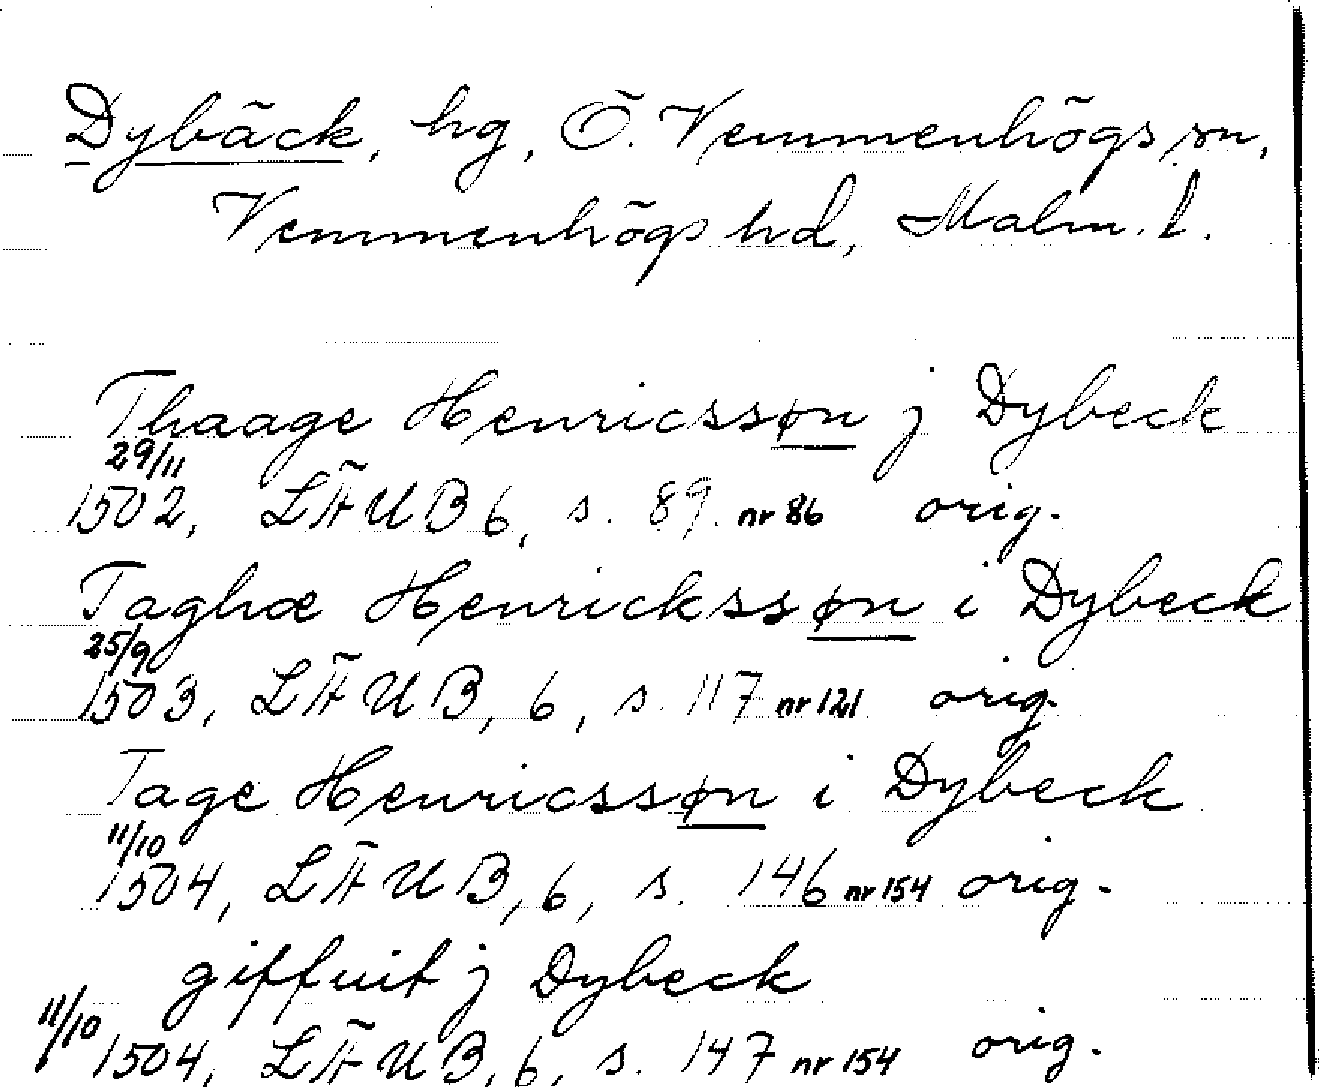 Dybäck, hg, Ö. Vemmenhögs sn,
Vemmenhögs hd, Malm. l.
Thaage Henricssøn j Dybeck
29/11
1502, LÄUB 6, s. 89. nr 86 orig.
Taghæ Henrickssøn i Dybeck
25/9
1503, LÄUB, 6, s. 117 nr 121 orig.
Tage Henricssøn i Dybeck
11/10
1504, LÄUB, 6, s. 146 nr 154 orig.
giffuit j Dybeck
11/10 1504, LÄUB, 6, s. 147 nr 154 orig.